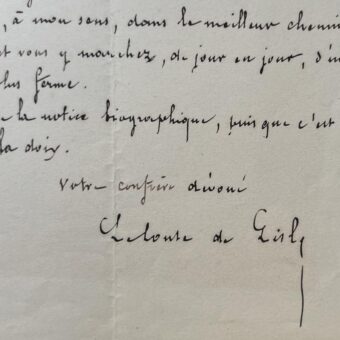 , à mon sens, dans le meilleur chemin
et vous y marchez, de jour en jour, d'un
plus ferme.
la notice biographique, puisque c'est
la dois.
Votre confrère dévoué
Leconte de Lisle